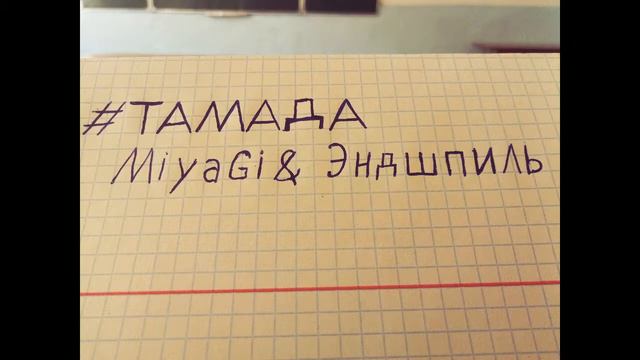 #ТАМАДА
MiyaGi & Эндшпиль